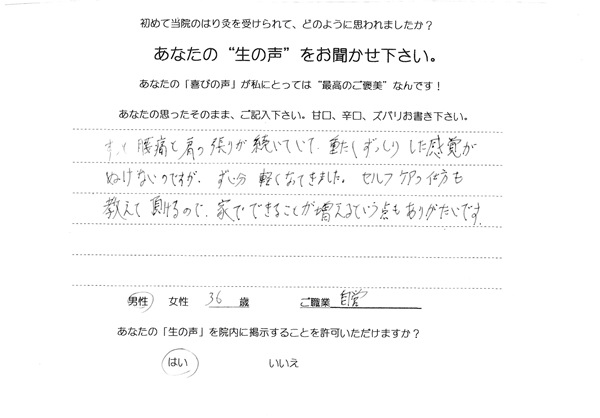 初めて当院のはり灸を受けられて、どのように思われましたか？
あなたの“生の声”をお聞かせ下さい。
あなたの「喜びの声」が私にとっては“最高のご褒美”なんです！
あなたの思ったそのまま、ご記入下さい。甘口、辛口、ズバリお書き下さい。
ずっと腰痛と肩の張りが続いていて、重たくずっしりした感覚が
ぬけないのですが、ずい分軽くなってきました。セルフケアの仕方も
教えて頂けるので、家でできることが増えるという点もありがたいです。
男性 女性 36 歳 ご職業 自営
あなたの「生の声」を院内に掲示することを許可いただけますか？
はい いいえ